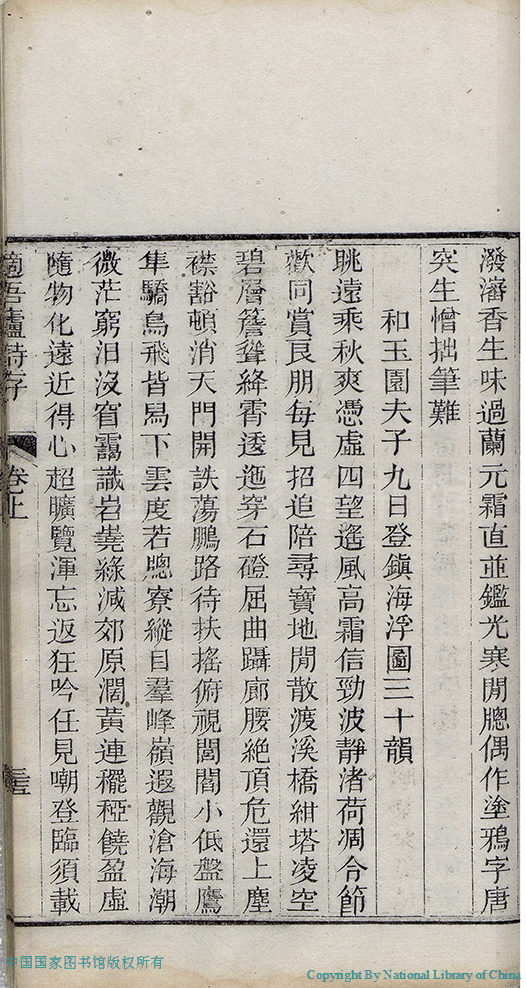 潑瀋香生味過蘭元霜直並鑑光寒閒牕偶作塗鴉字唐
突生憎拙筆難
和玉園夫子九日登鎮海浮圖三十韻
眺遠乘秋爽憑虛四望遙風高霜信勁波靜渚荷凋令節
歡同賞良朋每見招追陪尋寶地閒散渡溪橋紺塔凌空
碧層簷聳絳霄透迤穿石磴屈曲躡廊腰絶頂危還上塵
襟豁頓消天門開詄蕩鵬路待扶搖俯視閭閻小低盤鷹
隼驕鳥飛皆舄下雲度若牕寮縱目羣峰嶺遐觀滄海潮
微茫窮汨沒窅靄識岧嶤綠減郊原濶黃連䆉稏饒盈虛
隨物化遠近得心超曠覽渾忘返狂吟任見嘲登臨須載
適吾廬詩存 卷上 三五
中国国家图书馆版权所有
Copyright By National Library of China